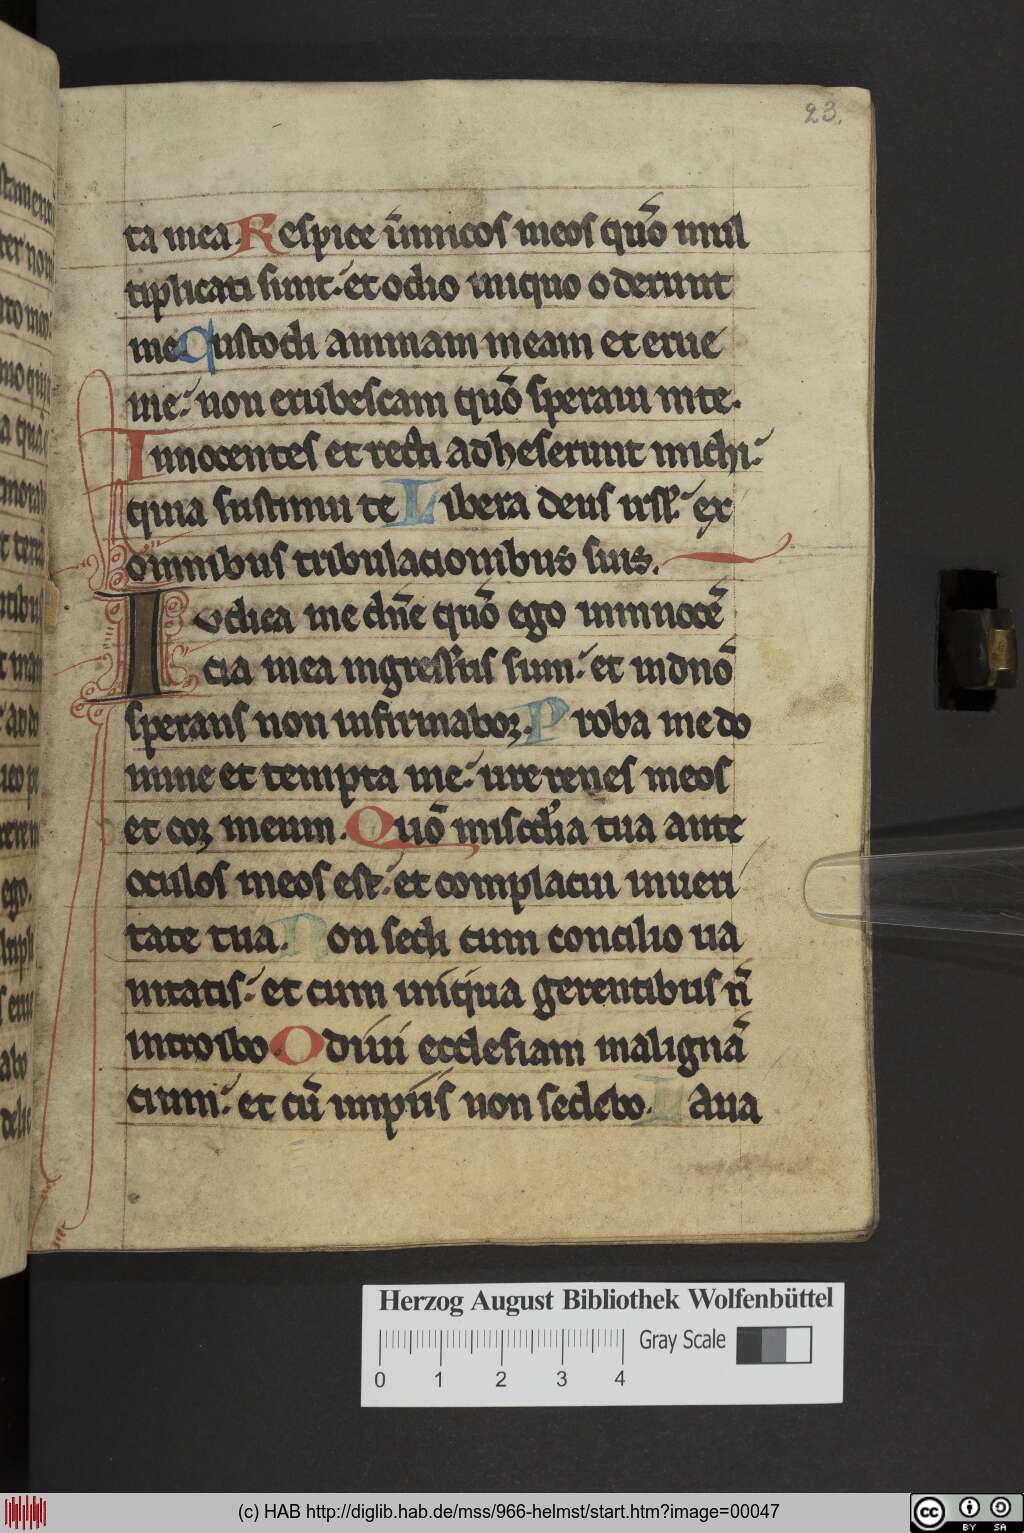 23.
ta mea. Respice inimicos meos quō mul
tiplicati sunt. et odio iniquo oderunt
me Custodi animam meam et erue
me. non erubescam quō speraui inte.
Innocentes et recti adheserunt michi.
quia sustinui te Libera deus isrl̄. ex
omnibus tribulacionibus suis.
Iudica me dn̄e quō ego innocē
cia mea ingressus sum. et indnō
sperans non infirmabor. Proba me do
mine et tempta me. ure renes meos
et cor meum. Quō misc̄dia tua ante
oculos meos est. et complacui inueri
tate tua. Non sedi cum concilio ua
nitatis. et cum iniqua gerentibus n̄
introibo. Odiui ecclesiam malignā
cium. et cū impiis non sedebo. Laua
Herzog August Bibliothek Wolfenbüttel
Gray Scale
0 1 2 3 4
(c) HAB http://diglib.hab.de/mss/966-helmst/start.htm?image=00047
cc BY SA